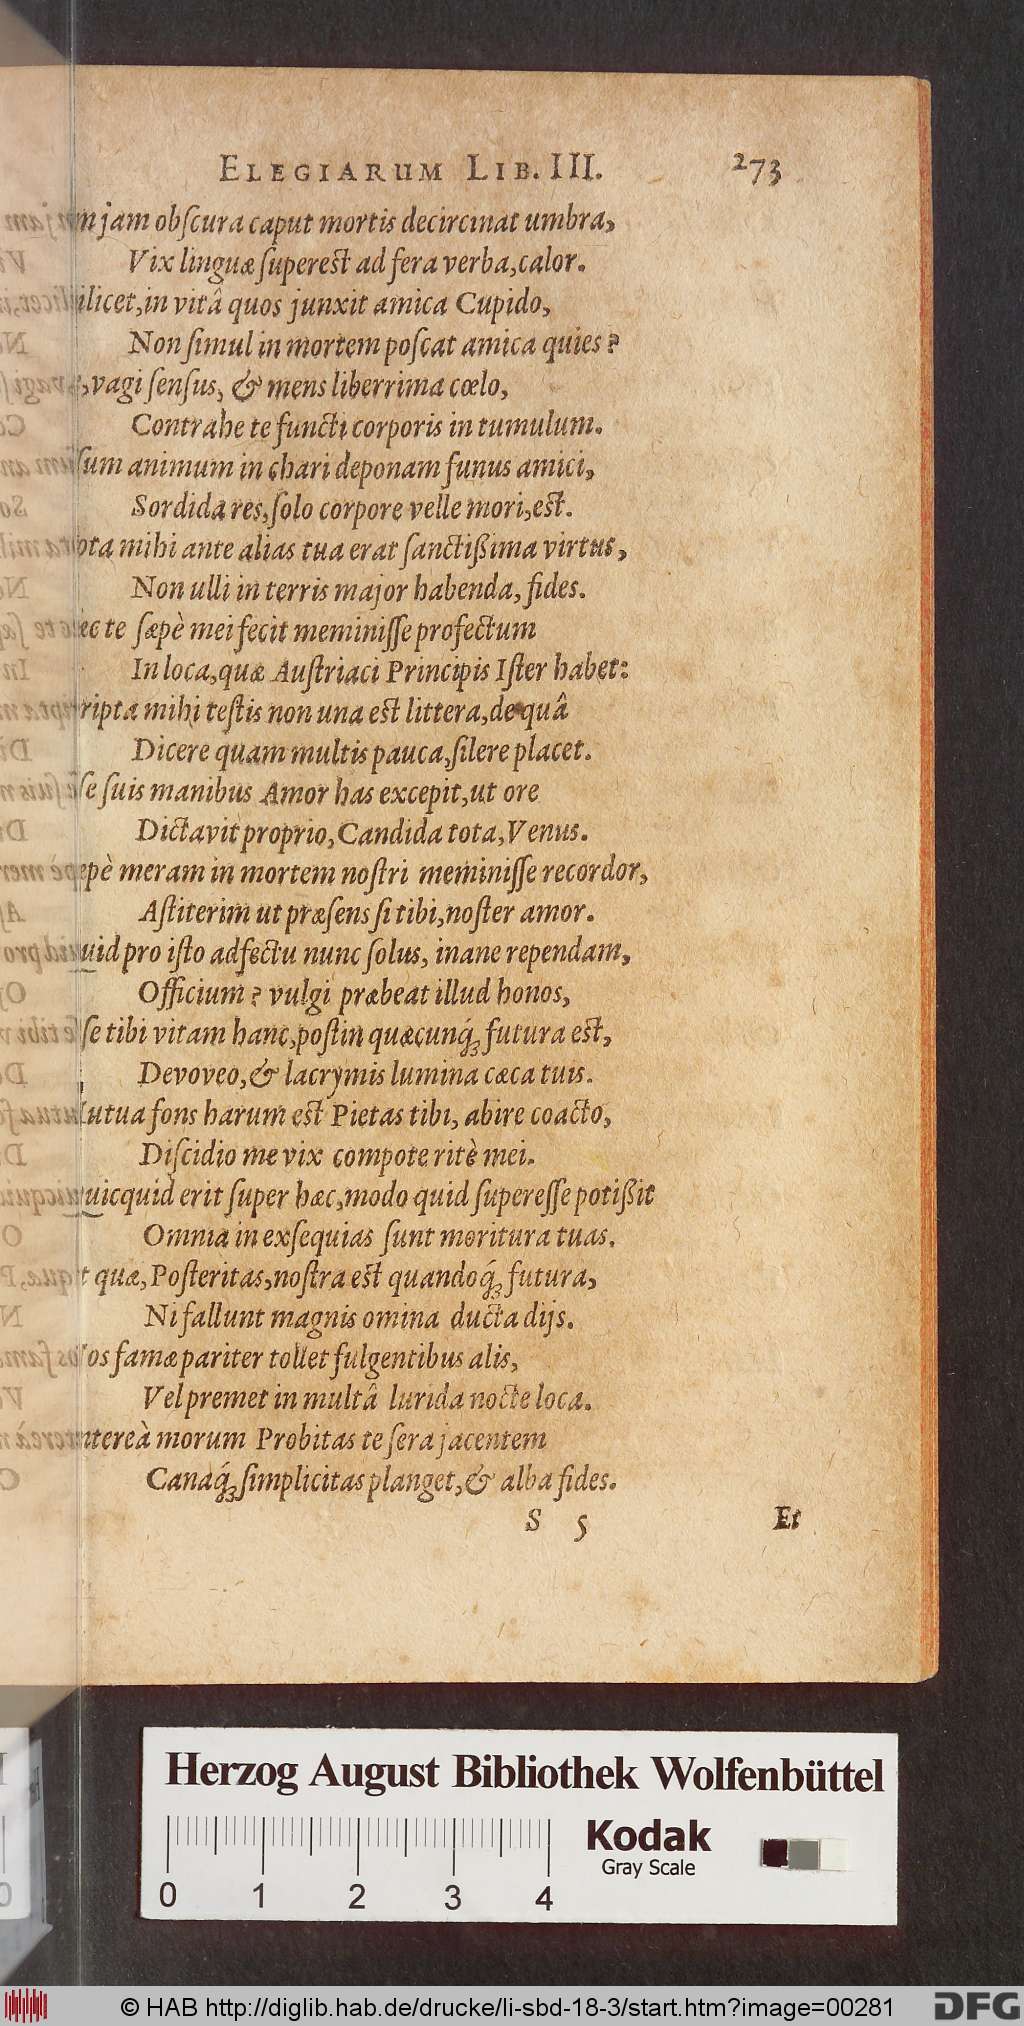 ELEGIARUM LIB. III. 273
jam obſcura caput mortis decircinat umbra,
Vix linguæ ſupereſt ad fera verba, calor.
ilicet, in vitâ quos junxit amica Cupido,
Non ſimul in mortem poſcat amica quies?
, vagi ſenſus, & mens liberrima cœlo,
Contrahe te functi corporis in tumulum.
ſum animum in chari deponam funus amici,
Sordida res, ſolo corpore velle mori, eſt.
ota mihi ante alias tua erat ſanctißima virtus,
Non ulli in terris major habenda, fides.
ec te ſæpè mei fecit meminiſſe profectum
In loca, quæ Auſtriaci Principis Iſter habet:
ripta mihi teſtis non una eſt littera, de quâ
Dicere quam multis pauca, ſilere placet.
ſe ſuis manibus Amor has excepit, ut ore
Dictavit proprio, Candida tota, Venus.
epè meram in mortem noſtri meminiſſe recordor,
Aſtiterim ut præſens ſi tibi, noſter amor.
uid pro iſto adfectu nunc ſolus, inane rependam,
Officium? vulgi præbeat illud honos,
ſe tibi vitam hanc, poſtin quæcunq́; futura eſt,
Devoveo, & lacrymis lumina cæca tuis.
utua fons harum eſt Pietas tibi, abire coacto,
Diſcidio me vix compote ritè mei.
uicquid erit ſuper hæc, modo quid ſupereſſe potißit
Omnia in exſequias ſunt moritura tuas.
t quæ, Poſteritas, noſtra eſt quandoq́; futura,
Ni fallunt magnis omina ducta dijs.
os famæ pariter tollet fulgentibus alis,
Vel premet in multâ lurida nocte loca.
ntereà morum Probitas te ſera jacentem
Canaq́; ſimplicitas planget, & alba fides.
S 5 Et
Herzog August Bibliothek Wolfenbüttel
Kodak
Gray Scale
0 1 2 3 4
© HAB http://diglib.hab.de/drucke/li-sbd-18-3/start.htm?image=00281 DFG